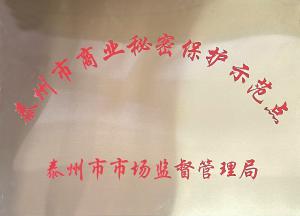 泰州市商业秘密保护示范点
泰州市市场监督管理局